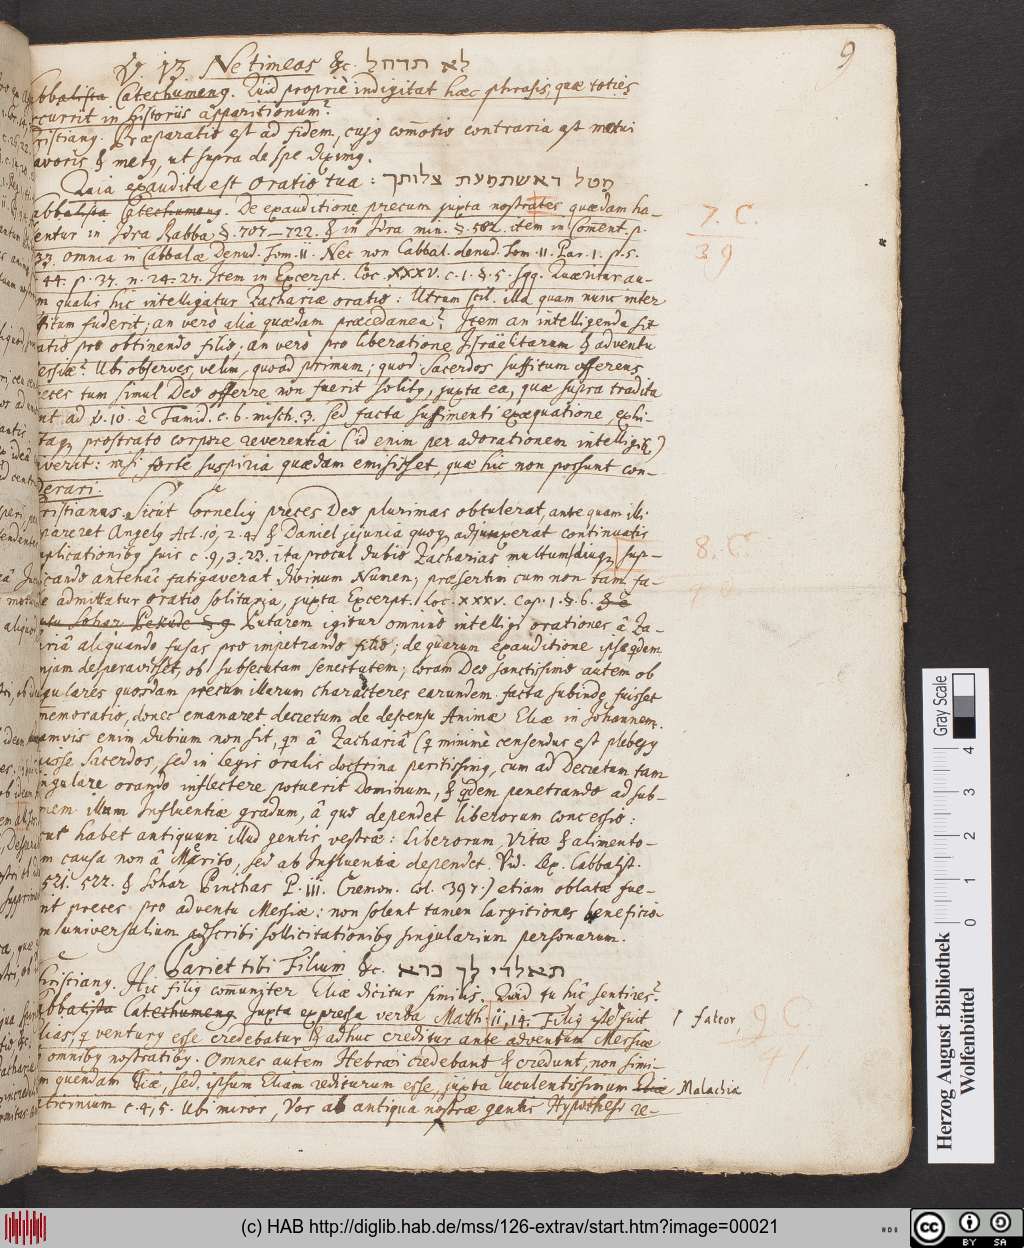 9
V. 13. Ne timeas &c. לא תדחל
Cabbalista Catechumeng. Quid propriè indigitat hæc phrasis, quæ toties
occurrit in historiis apparitionum?
Christiang. Præparatio est ad fidem, cujg com̄otio contraria est motui
& metg, ut supra de spe diximg.
Quia exaudita est oratio tua : מטל דאשתמעת צלותך
Cabbalista Catechumeng. De exauditione precum juxta nostrates quædam ha-
bentur in Idra Rabba, §. 707–722. & in Idra min. §. 582. item in Coment. p.
33. omnia in Cabbalæ Denud. Tom. II. Nec non Cabbal. denud. Tom. II. Par. 1. p. 5.
44. p. 27. n. 24. 27. Item in Excerpt. Loc. XXXV. c. 1. §. 5. sqq. Quæritur au-
tem qualis hic intelligatur Zachariæ oratio: Utrum scil. illa quam nunc inter
suffitum fuderit; an verò alia quædam præcedanea? Item an intelligenda sit
oratio pro obtinendo filio, an verò pro liberatione Israëlitarum & adventu
Messiæ? Ubi observes, velim, quoad primum; quod Sacerdos suffitum offerens
preces tum simul Deo offerre non fuerit solitg, juxta ea, quæ supra tradita
sunt ad v. 10. è Tamid. c. 6. misch. 3. sed facta suffimenti exæquatione, exhi-
prostrato corpore reverentia (id enim per adorationem intelligit)
nisi forte suspiria quædam emisisset, quæ hic non possunt con-
siderari.
Christianus. Sicut Cornelig preces Deo plurimas obtulerat, ante quam illi
appareret Angelg Act. 10, 2. 4. & Daniel jejunia quoq, adjunxerat continuatis
supplicationibg suis c. 9, 3. 23. ita procul dubio Zacharias multum diuq, sup-
plicando antehac fatigaverat divinum Numen; præsertim cum non tam fa-
cile admittatur oratio solitaria, juxta Excerpt. Loc. XXXV. Cap. 1. §. 6. & è
Sohar Pekude § 9 Putarem igitur omninò intelligi orationes â Za-
chariâ aliquando fusas pro impetrando filio; de quarum exauditione ipse qdem
jam desperavisset, ob subsecutam senectutem; coram Deo sanctissimo autem ob
singulares quosdam precum illarum characteres earundem facta subinde fuisset
com̄emoratio, donec emanaret decretum de descensu Animæ Eliæ in Johannem.
Quamvis enim dubium non sit, qn â Zachariâ (q minimè censendus est plebejg
fuisse Sacerdos, sed in legis oralis doctrina peritissimg, cum ad Decretum tam
singulare orando inflectere potuerit Dominum, & qdem penetrando ad sub-
limem illum Influentiæ gradum, â quo dependet liberorum concessio:
sicut habet antiquum illud gentis vestræ: Liberorum, Vitæ & alimento-
rum causa non â Merito, sed ab Influentia dependet. Vid. Lex. Cabbalist.
521. 522. & Sohar Pinchas P. III. Cremon. col. 397.) etiam oblatæ fue-
rint preces pro adventu Messiæ: non solent tamen largitiones beneficio-
rum universalium adscribi sollicitationibg singularium personarum.
Pariet tibi Filium &c. תאלדי לך ברא
Christiang. Hic filig com̄uniter Eliæ dicitur similis. Quid tu hîc sentires?
Cabbalista Catechumeng Juxta expressa verba Matth. II, 14. Filig iste fuit
Elias, q venturg esse credebatur & adhuc creditur ante adventum Messiæ
ab omnibg nostratibg. Omnes autem Hebræi credebant & credunt, non simi-
lem quendam Eliæ, sed, ipsum Eliam rediturum esse, juxta luculentissimum Eliæ
vaticinium c. 4, 5. Ubi miror, Vos ab antiqua nostræ gentis Hypothesi re-
7. C.
39
8. C.
40
fateor,
9 C.
41
Malachiæ
Gray Scale
0 1 2 3 4
Herzog August Bibliothek
Wolfenbüttel
(c) HAB http://diglib.hab.de/mss/126-extrav/start.htm?image=00021
cc BY SA